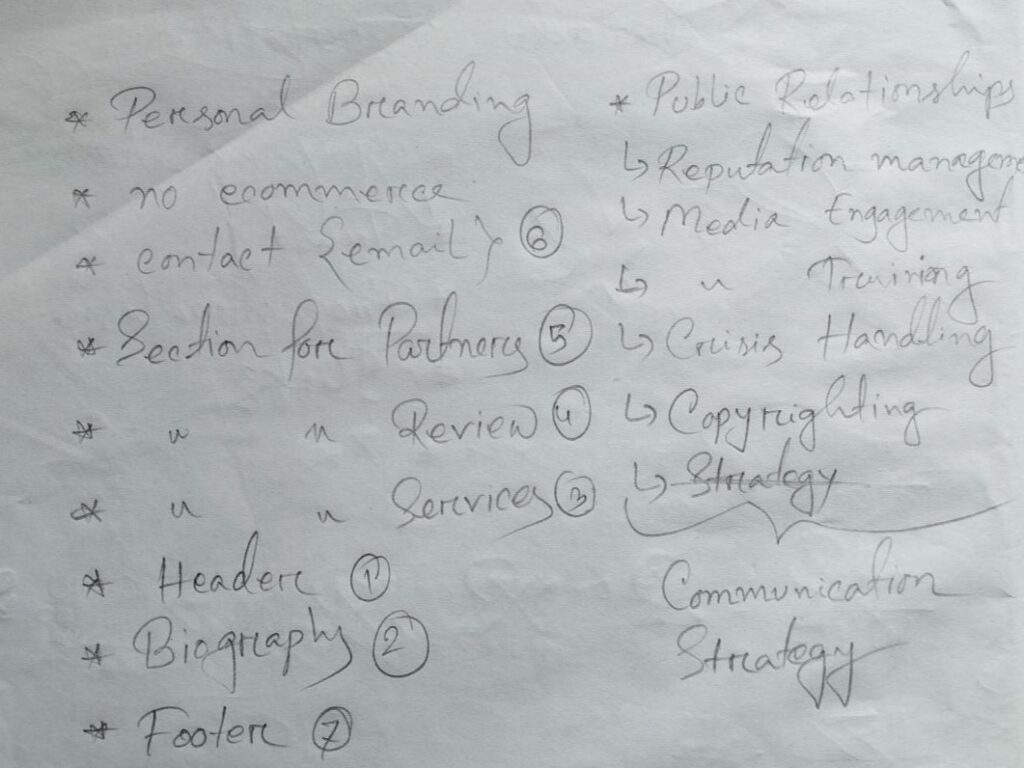 * Personal Branding
* no ecommerce
* contact {email} ⑥
* Section for Partners ⑤
* " " Review ④
* " " Services ③
* Header ①
* Biography ②
* Footer ⑦
* Public Relationships
↳ Reputation managem
↳ Media Engagement
↳ " Training
↳ Crisis Handling
↳ Copyrighting
↳ Strategy
Communication
Strategy